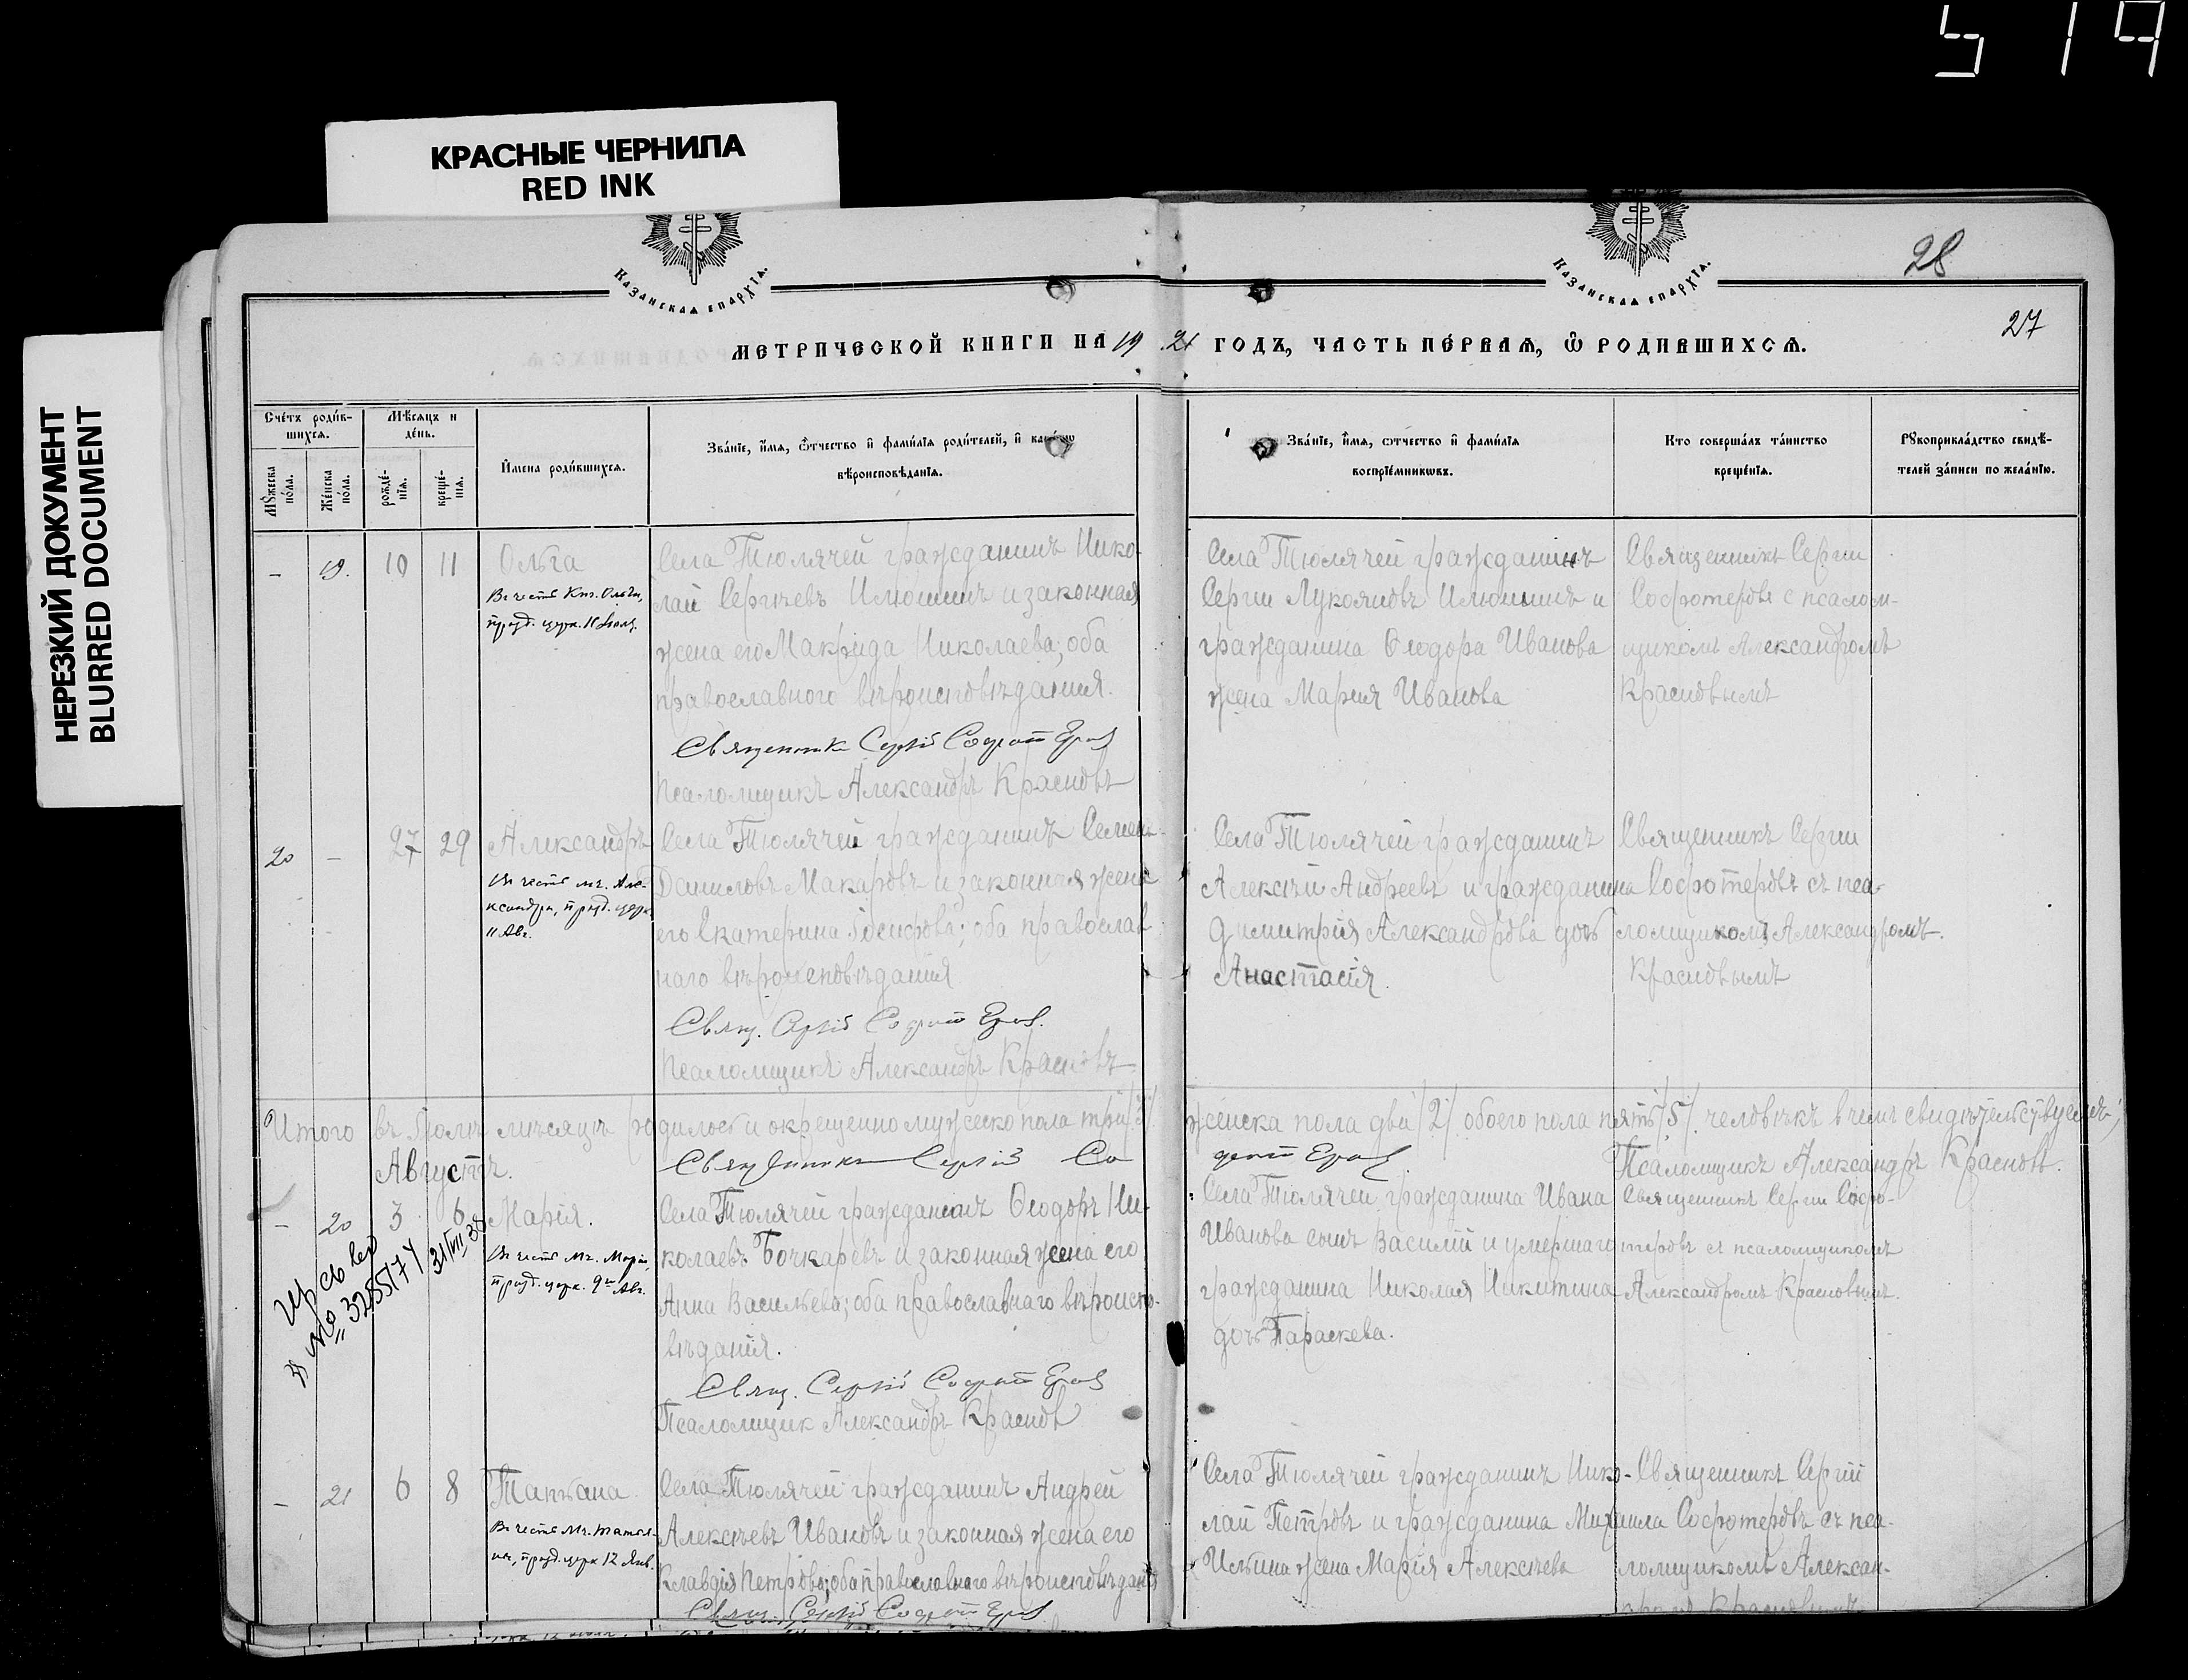 514
КРАСНЫЕ ЧЕРНИЛА
RED INK
НЕРЕЗКИЙ ДОКУМЕНТ
BLURRED DOCUMENT
Казанская епархїа.
Казанская епархїа.
28
27
МЕТРИЧЕСКОЙ КНИГИ НА 1921 ГОДЪ, ЧАСТЬ ПЕ́РВАЯ, Ѡ РОДИВШИХСЯ.
Сче́тъ роди́в-
шихся.
Мѣ́сяцъ и
де́нь.
Мꙋ́жеска
по́ла.
Же́нска
по́ла.
рожде́-
нїя.
креще́-
нїя.
И҆мена роди́вшихся.
Зва́нїе, и҆́мя, ѻ҆́тчество и҆ фами́лїя роди́телей, и҆ како́гѡ
вѣроисповѣ́данїя.
Зва́нїе, и҆́мя, ѻ҆́тчество и҆ фами́лїя
воспрїе́мникѡвъ.
Кто соверша́лъ та́инство
креще́нїя.
Рꙋкоприкла́дство свидѣ́-
телей за́писи по жела́нїю.
- 19. 10 11 Ольга
Въ честь Кнг. Ольги,
празд. церк. 11 Іюля.
Села Тюлячей гражданинъ Нико-
лай Сергѣевъ Илюшинъ и законная
жена его Макрида Николаева; оба
православнаго вѣроисповѣданія.
Священникъ Сергій Софотеровъ
Псаломщикъ Александръ Красновъ
Села Тюлячей гражданинъ
Сергій Лукояновъ Илюшинъ и
гражданина Ѳеодора Иванова
жена Марія Иванова
Священникъ Сергій
Софотеровъ с псалом-
щикомъ Александромъ
Красновымъ
20 - 27 29 Александръ
Въ честь мч. Але-
ксандра, празд. церк.
11 Авг.
Села Тюлячей гражданинъ Семенъ
Даниловъ Макаровъ и законная жена
его Екатерина Іосифова; оба православ
наго вѣроисповѣданія
Свящ. Сергій Софотеровъ.
Псаломщикъ Александръ Красновъ
Села Тюлячей гражданинъ
Алексѣй Андреевъ и гражданина
Димитрія Александрова дочь
Анастасія.
Священникъ Сергій
Софотеровъ съ пса-
ломщикомъ Александромъ.
Красновымъ
Итого въ Іюлѣ мѣсяцѣ родилось и окрещенно мужеско пола три /3/ женска пола двѣ /2/ обоего пола пять /5/ человѣкъ в чемъ свидѣтельствуемъ;
Священникъ Сергій Софотеровъ. Псаломщикъ Александръ Красновъ.
Августъ.
- 20 3 6 Марія.
Въ честь Мч. Маріи,
празд. церк. 9го Авг.
№ 3255174 31/VII 38
Села Тюлячей гражданинъ Ѳеодоръ Ни-
колаевъ Бочкаревъ и законная жена его
Анна Васильева; оба православнаго вѣроиспо-
вѣданія.
Свящ. Сергій Софотеровъ
Псаломщик Александръ Краснов
Села Тюлячей гражданина Ивана
Иванова сынъ Василій и умершаго
гражданина Николая Никитина
дочь Параскева.
Священникъ Сергій Софо-
теровъ съ псаломщикомъ
Александромъ Красновымъ.
- 21 6 8 Татьана
Въ честь Мч. Татья-
ны, празд. церк 12 Янв.
Села Тюлячей гражданинъ Андрей
Алексѣевъ Ивановъ и законная жена его
Клавдія Петрова; оба православнаго вѣроисповѣданія
Свящ. Сергій Софотеровъ
Села Тюлячей гражданинъ Нико-
лай Петровъ и гражданина Михаила
Ильина жена Марія Алексѣева
Священникъ Сергій
Софотеровъ съ пса-
ломщикомъ Алексан-
дромъ Красновымъ